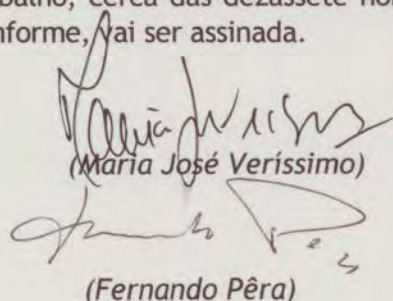 balho, cerca das dezassete ho
nforme, vai ser assinada.
(Maria José Veríssimo)
(Fernando Pêra)